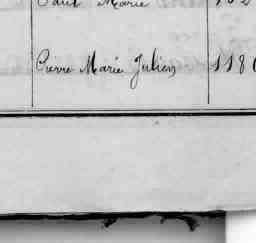 Paul Marie
Pierre Marie Julien 118